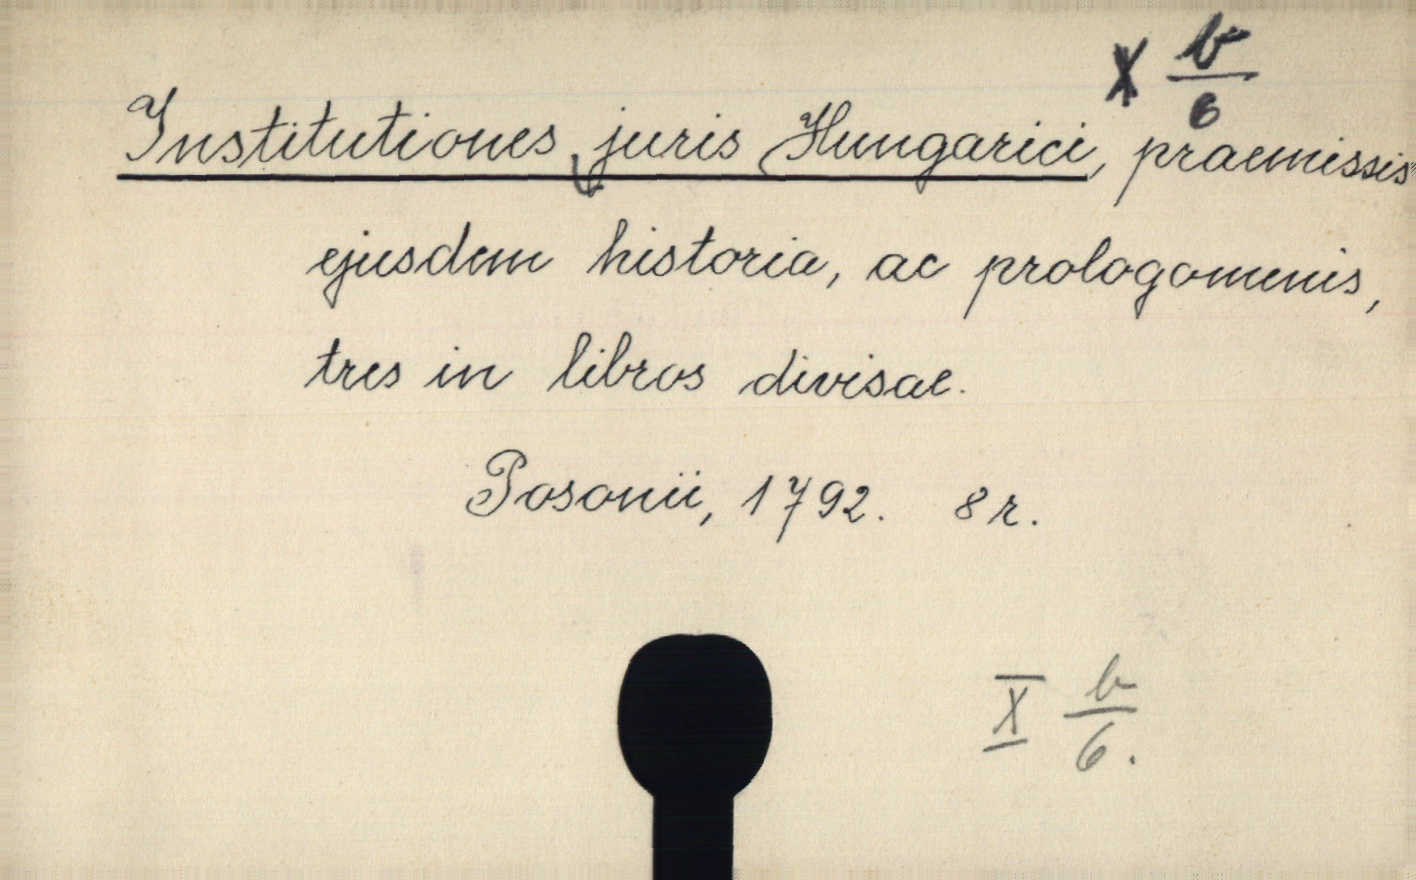 X b/6
Institutiones juris Hungarici, praemissis
ejusdem historia, ac prologomenis,
tres in libros divisae.
Posonii, 1792. 8 r.
X b/6.